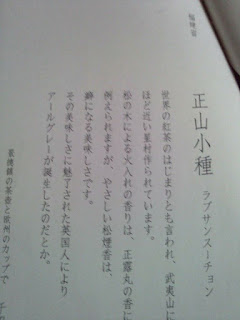 正山小種 ラプサンスーチョン
世界の紅茶のはじまりとも言われ、武夷山に
ほど近い星村作られています。
松の木による火入れの香りは、正露丸の香に
例えられますが、やさしい松煙香は、
癖になる美味しさです。
その美味しさに魅了された英国人により
アールグレーが誕生したのだとか。
景徳鎮の茶壺と欧州のカップで